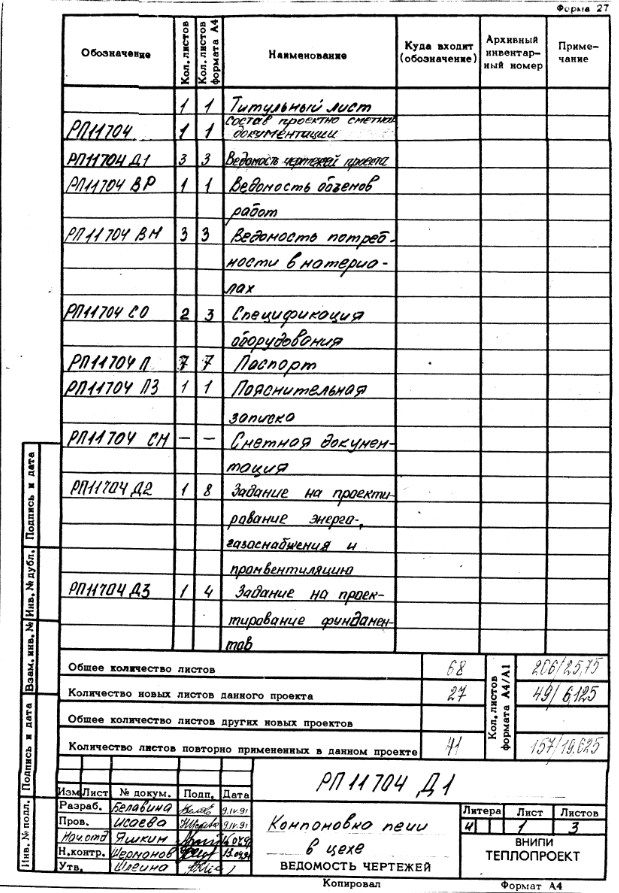 Форма 27
Обозначение
Кол. листов
Кол. листов формата А4
Наименование
Куда входит (обозначение)
Архивный инвентар-ный номер
Приме-чание
1 1 Титульный лист
РП11704 1 1 Состав проектно сметной
документации
РП11704 Д1 3 3 Ведомость чертежей проекта
РП11704 ВР 1 1 Ведомость объемов
работ
РП11704 ВМ 3 3 Ведомость потреб-
ности в материа-
лах
РП11704 СО 2 3 Спецификация
оборудования
РП11704 П 7 7 Паспорт
РП11704 ПЗ 1 1 Пояснительная
записка
РП11704 СМ — — Сметная докумен-
тация
РП11704 Д2 1 8 Задание на проекти-
рование энерго-,
газоснабжения и
промвентиляцию
РП11704 Д3 1 4 Задание на проек-
тирование фундамен-
тов
Общее количество листов 68
Кол. листов формата А4/А1
206/25,75
Количество новых листов данного проекта 27 49/6,125
Общее количество листов других новых проектов
Количество листов повторно примененных в данном проекте 41 157/19,625
Инв. № подл.
Подпись и дата
Взам. инв. №
Инв. № дубл.
Подпись и дата
РП 11704 Д1
Изм Лист № докум. Подп. Дата
Разраб. Белавина 9.IV.91
Пров. Исаева 9.IV.91
Нач.отд Яшкин
Н.контр.
Утв.
Компоновка печи
в цехе
ВЕДОМОСТЬ ЧЕРТЕЖЕЙ
Литера Лист Листов
И 1 3
ВНИПИ
ТЕПЛОПРОЕКТ
Копировал Формат А4